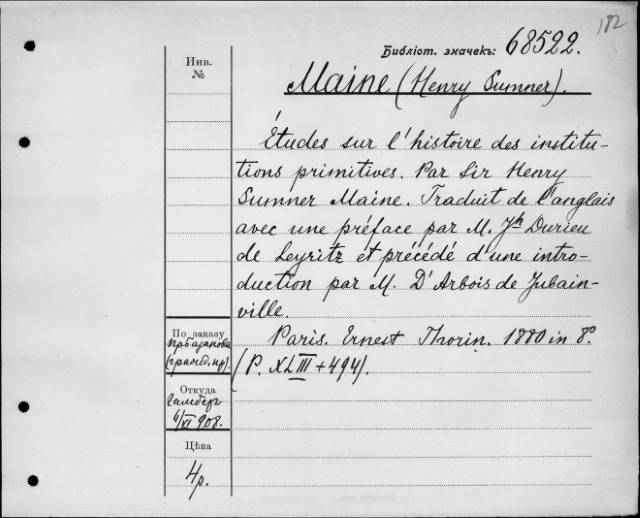 182
Библіот. значекъ: 68522.
Инв.
№
Maine (Henry Sumner).
Études sur l'histoire des institu-
tions primitives. Par Sir Henry
Sumner Maine. Traduit de l'anglais
avec une préface par M. Jh Durieu
de Leyritz et précédé d'une intro-
duction par M. D'Arbois de Jubain-
ville.
Paris. Ernest Thorin. 1880 in 8º
(P. XLIII + 494).
По заказу
(гражд. пр.)
Откуда
Гамберъ
6/XI 908.
Цѣна
4 р.